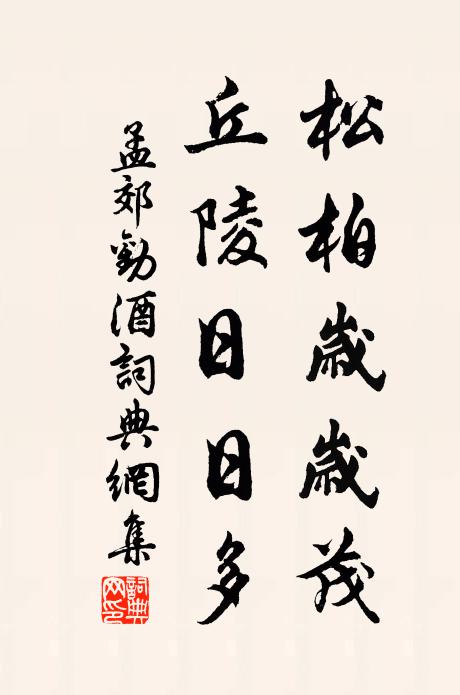 松柏歲歲茂
丘陵日日多
孟郊勸酒詞典網集
詞典網印